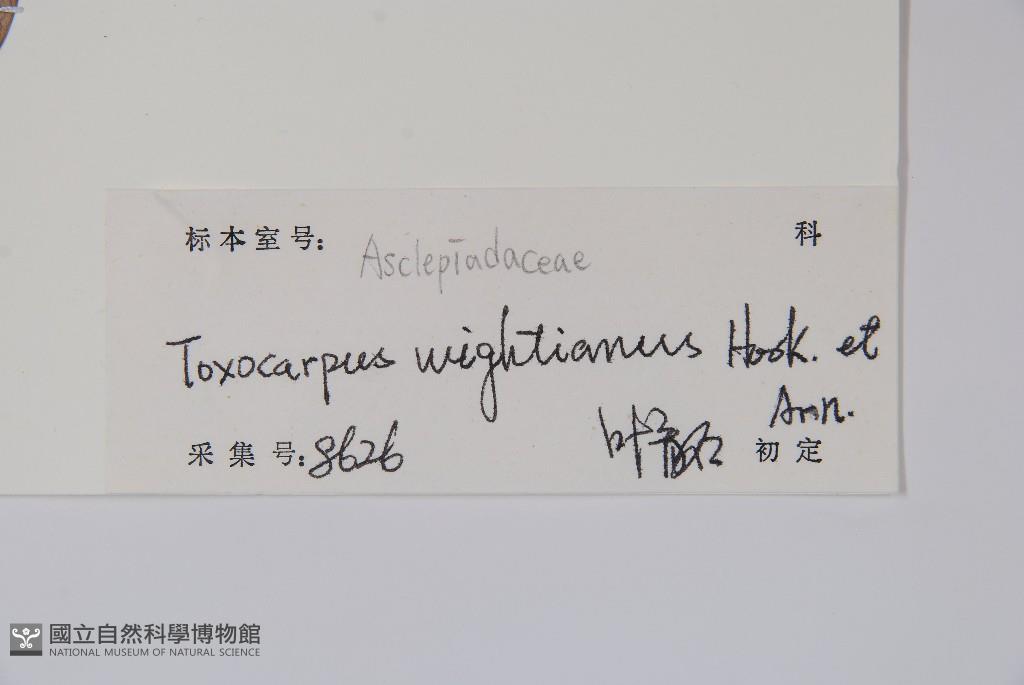 标本室号: Asclepiadaceae 科
Toxocarpus wightianus Hook. et
Arn.
采集号: 8626 叶 初定
國立自然科學博物館
NATIONAL MUSEUM OF NATURAL SCIENCE